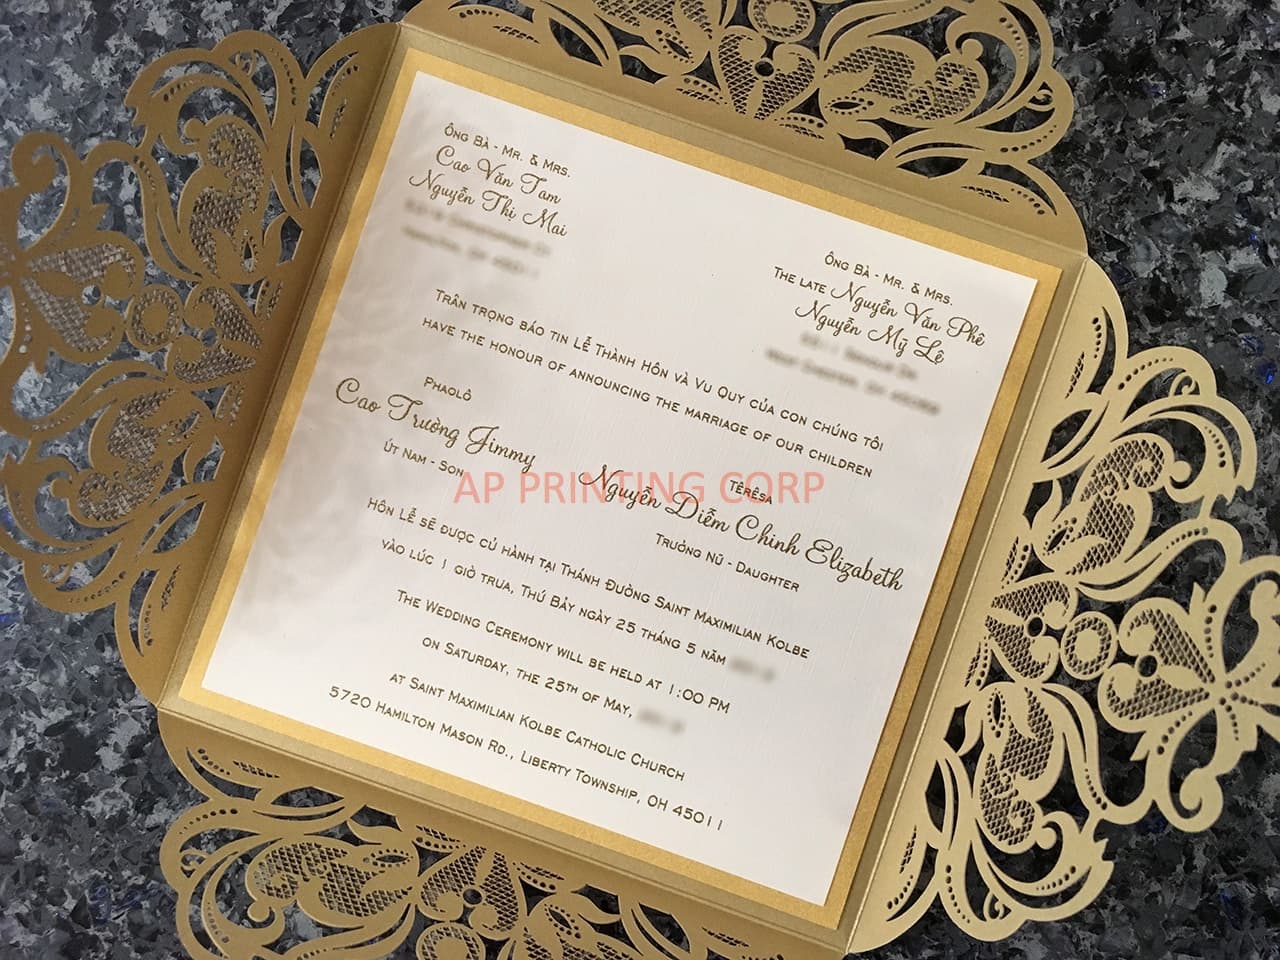 Ông Bà - Mr. & Mrs.
Cao Văn Tam
Nguyễn Thi Mai
Ông Bà - Mr. & Mrs.
The late Nguyễn Văn Phê
Nguyễn Mỹ Lê
Trân trọng báo tin Lễ Thành Hôn và Vu Quy của con chúng tôi
have the honour of announcing the marriage of our children
Phaolô
Cao Trường Jimmy
Út Nam - Son
Têrêsa
Nguyễn Diễm Chinh Elizabeth
Trưởng Nữ - Daughter
AP PRINTING CORP
Hôn Lễ sẽ được cử hành tại Thánh Đường Saint Maximilian Kolbe
vào lúc 1 giờ trưa, Thứ Bảy ngày 25 tháng 5 năm
The Wedding Ceremony will be held at 1:00 pm
on Saturday, the 25th of May,
at Saint Maximilian Kolbe Catholic Church
5720 Hamilton Mason Rd., Liberty Township, OH 45011